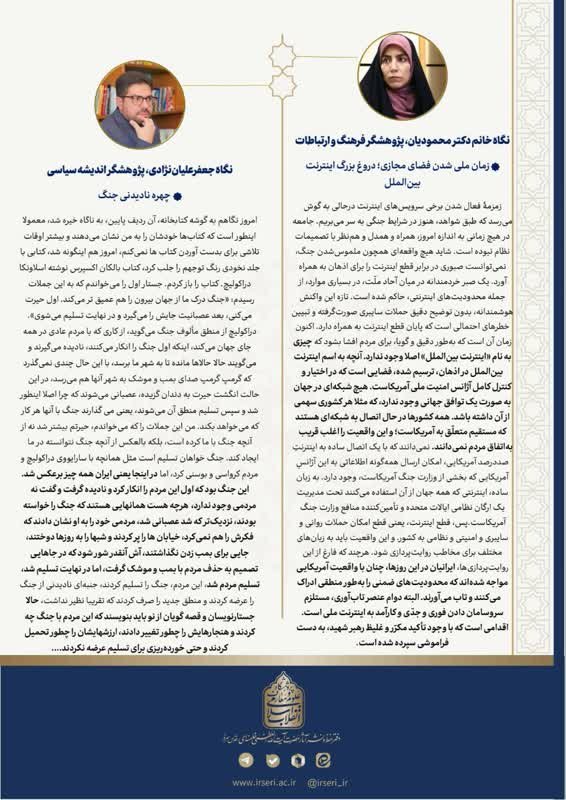 نگاه خانم دکتر محمودیان، پژوهشگر فرهنگ و ارتباطات
زمان ملی شدن فضای مجازی؛ دروغ بزرگ اینترنت
بین‌الملل
زمزمهٔ فعال شدن برخی سرویس‌های اینترنت درحالی به گوش
می‌رسد که طبق شواهد، هنوز در شرایط جنگی به سر می‌بریم. جامعه
در هیچ زمانی به اندازه امروز، همراه و همدل و هم‌نظر با تصمیمات
نظام نبوده است. شاید هیچ واقعه‌ای همچون ملموس‌شدن جنگ،
نمی‌توانست صبوری در برابر قطع اینترنت را برای اذهان به همراه
آورد. یک صبر خردمندانه در میان آحاد ملّت، در بسیاری موارد، از
جمله محدودیت‌های اینترنتی، حاکم شده است. تازه این واکنش
هوشمندانه، بدون توضیح دقیق حملات سایبری صورت‌گرفته و تبیین
خطرهای احتمالی است که پایان قطع اینترنت به همراه دارد. اکنون
زمان آن است که به‌طور دقیق و گویا، برای مردم افشا بشود که چیزی
به نام «اینترنت بین‌الملل» اصلا وجود ندارد. آنچه به اسم اینترنت
بین‌الملل در اذهان، ترسیم شده، فضایی است که در اختیار و
کنترل کامل آژانس امنیت ملی آمریکاست. هیچ شبکه‌ای در جهان
به صورت یک توافق جهانی وجود ندارد، که مثلا هر کشوری سهمی
از آن داشته باشد. همه کشورها در حال اتصال به شبکه‌ای هستند
که مستقیم متعلّق به آمریکاست؛ و این واقعیت را اغلب قریب
به‌اتفاق مردم نمی‌دانند. نمی‌دانند که با یک اتصال ساده به اینترنتِ
صددرصد آمریکایی، امکان ارسال همه‌گونه اطلاعاتی به این آژانس
آمریکایی که بخشی از وزارت جنگ آمریکاست، وجود دارد. به زبان
ساده، اینترنتی که همه جهان از آن استفاده می‌کنند تحت مدیریت
یک ارگان نظامی ایالات متحده و تأمین‌کننده منافع وزارت جنگ
آمریکاست. پس، قطع اینترنت، یعنی قطع امکان حملات روانی و
سایبری و امنیتی و نظامی به کشور. و این واقعیت باید به زبان‌های
مختلف برای مخاطب روایت‌پردازی شود. هرچند که فارغ از این
روایت‌پردازی‌ها، ایرانیان در این روزها، چنان با واقعیت آمریکایی
مواجه شده‌اند که محدودیت‌های ضمنی را به‌طور منطقی ادراک
می‌کنند و تاب می‌آورند. البته دوام عنصر تاب‌آوری، مستلزم
سروسامان دادن فوری و جدّی و کارآمد به اینترنت ملی است.
اقدامی است که با وجود تأکید مکرّر و غلیظ رهبر شهید، به دست
فراموشی سپرده شده است.
نگاه جعفرعلیان‌نژادی، پژوهشگر اندیشه سیاسی
چهره نادیدنی جنگ
امروز نگاهم به گوشه کتابخانه، آن ردیف پایین، به ناگاه خیره شد، معمولا
اینطور است که کتاب‌ها خودشان را به من نشان می‌دهند و بیشتر اوقات
تلاشی برای بدست آوردن کتاب ها نمی‌کنم، امروز هم اینگونه شد، کتابی با
جلد نخودی رنگ توجهم را جلب کرد، کتاب بالکان اکسپرس نوشته اسلاونکا
دراکولیچ. کتاب را باز کردم. جستار اول را می‌خواندم که به این جملات
رسیدم: «جنگ درک ما از جهان بیرون را هم عمیق تر می‌کند. اول حیرت
می‌کنی، بعد عصبانیت جایش را می‌گیرد و در نهایت تسلیم می‌شوی».
دراکولیچ از منطق مألوف جنگ می‌گوید، از کاری که با مردم عادی در همه
جای جهان می‌کند، اینکه اول جنگ را انکار می‌کنند، نادیده می‌گیرند و
می‌گویند حالا حالاها مانده تا به شهر ما برسد، با این حال چندی نمی‌گذرد
که گرمپ گرمپ صدای بمب و موشک به شهر آنها هم می‌رسد، در این
حالت انگشت حیرت به دندان گزیده، عصبانی می‌شوند که چرا اصلا اینطور
شد و سپس تسلیم منطق آن می‌شوند، یعنی می گذارند جنگ با آنها هر کار
که می‌خواهد بکند. من این جملات را که می‌خواندم، حیرتم بیشتر شد نه از
آنچه جنگ با ما کرده است، بلکه بالعکس از آنچه جنگ نتوانسته در ما
ایجاد کند. جنگ خواهان تسلیم است مثل همانچه با سارایووی دراکولیچ و
مردم کرواسی و بوسنی کرد، اما در اینجا یعنی ایران همه چیز برعکس شد.
این جنگ بود که اول این مردم را انکار کرد و نادیده گرفت و گفت نه
مردمی وجود ندارد، هرچه هست همانهایی هستند که جنگ را خواسته
بودند، نزدیک‌تر که شد عصبانی شد، مردمی خود را به او نشان دادند که
فکرش را هم نمی‌کرد، خیابان ها را پر کردند و شبها را به روزها دوختند،
جایی برای بمب زدن نگذاشتند، آش آنقدر شور شود که در جاهایی
تصمیم به حذف مردم با بمب و موشک گرفت، اما در نهایت تسلیم شد،
تسلیم مردم شد. این مردم، جنگ را تسلیم کردند، جنبه‌ای نادیدنی از جنگ
را عرضه کردند و منطق جدید را صرف کردند که تقریبا نظیر نداشت. حالا
جستارنویسان و قصه گویان از نو باید بنویسند که این مردم با جنگ چه
کردند و هنجارهایش را چطور تغییر دادند، ارزشهایشان را چطور تحمیل
کردند و حتی خورده‌ریزی برای تسلیم عرضه نکردند....
انقلاب اسلامی
www.irseri.ac.ir
@irseri_ir